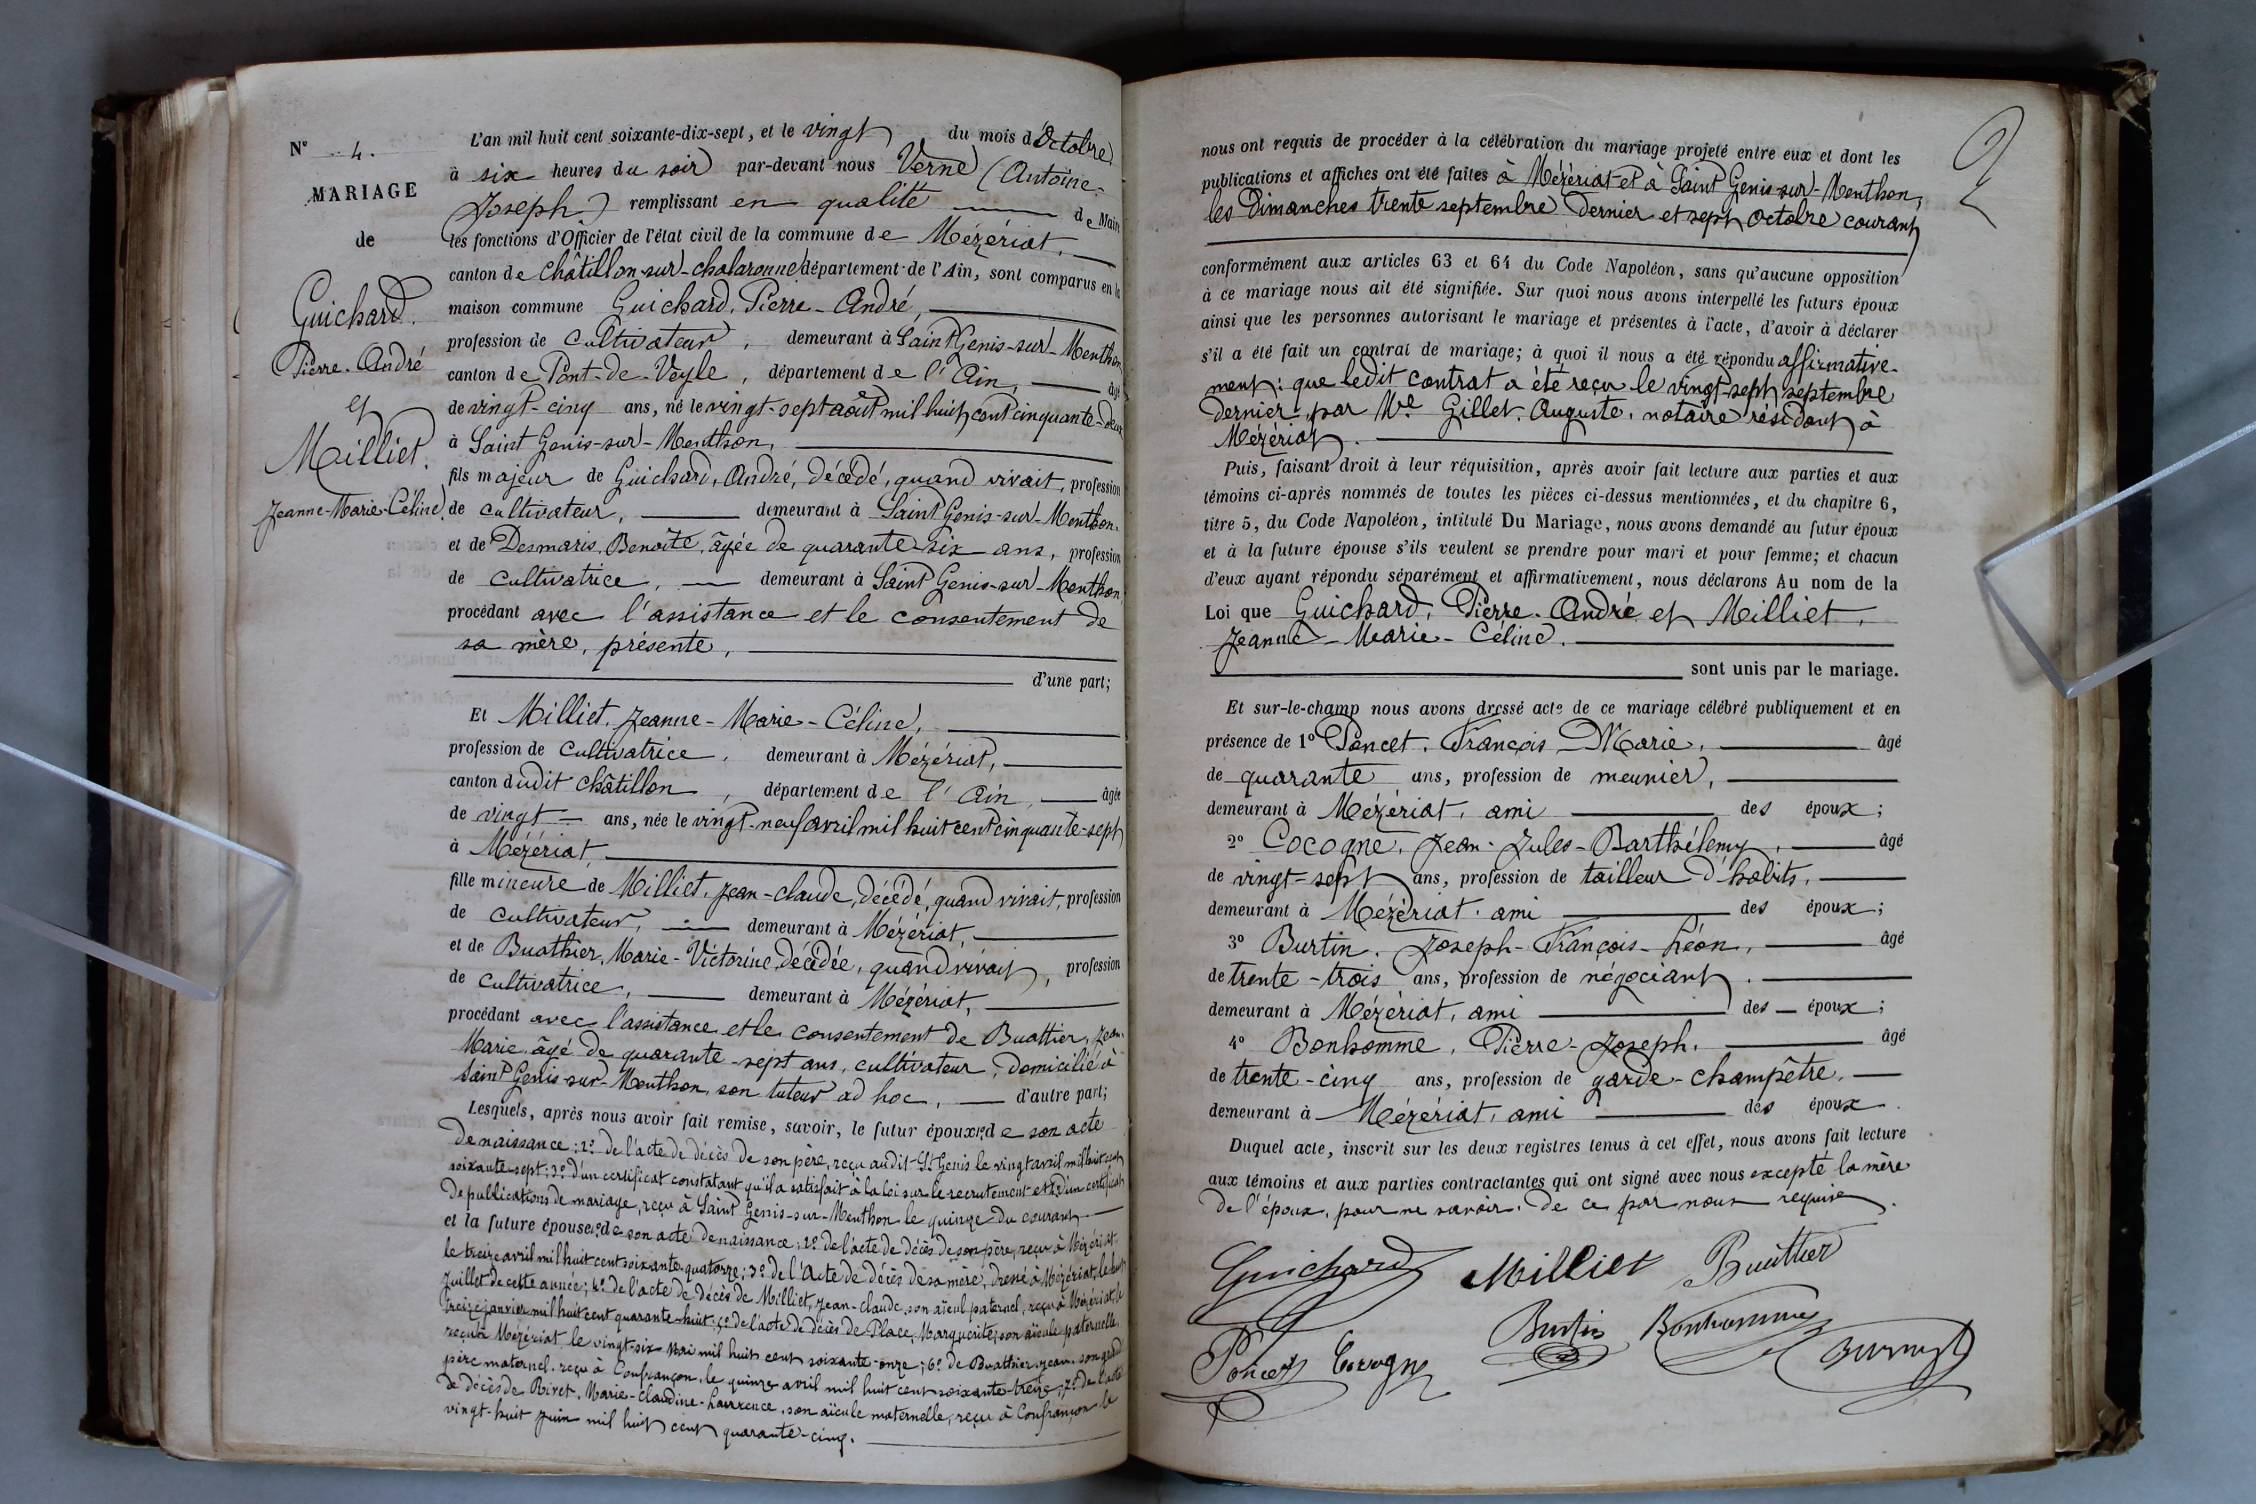 N° 4.
MARIAGE
de
Guichard.
Pierre-André
et
Milliet.
Jeanne-Marie-Céline.
L'an mil huit cent soixante-dix-sept, et le vingt du mois d'Octobre
à six heures du soir par-devant nous Verne (Antoine-
Joseph) remplissant en qualité de Maire
les fonctions d'Officier de l'état civil de la commune de Mézériat,
canton de Châtillon-sur-chalaronne département de l'Ain, sont comparus en la
maison commune Guichard, Pierre-André,
profession de cultivateur, demeurant à Saint Genis-sur-Menthon
canton de Pont-de-Veyle, département de l'Ain, âgé
de vingt-cinq ans, né le vingt-sept août mil huit cent cinquante-deux
à Saint Genis-sur-Menthon,
fils majeur de Guichard, André, décédé, quand vivait, profession
de cultivateur, demeurant à Saint Genis-sur-Menthon
et de Desmaris, Benoîte, âgée de quarante six ans, profession
de cultivatrice, demeurant à Saint Genis-sur-Menthon,
procédant avec l'assistance et le consentement de
sa mère, présente,
d'une part;
Et Milliet, Jeanne-Marie-Céline,
profession de cultivatrice, demeurant à Mézériat,
canton dudit châtillon, département de l'Ain, âgée
de vingt ans, née le vingt-neuf avril mil huit cent cinquante-sept
à Mézériat,
fille mineure de Milliet, Jean-claude, décédé, quand vivait, profession
de cultivateur, demeurant à Mézériat,
et de Buathier, Marie-Victorine, décédée, quand vivait, profession
de cultivatrice, demeurant à Mézériat,
procédant avec l'assistance et le consentement de Buattier, Jean-
Marie, âgé de quarante-sept ans, cultivateur, domicilié à
Saint Genis-sur-Menthon, son tuteur ad hoc, d'autre part;
Lesquels, après nous avoir fait remise, savoir, le futur époux: 1° de son acte
de naissance; 2° de l'acte de décès de son père, reçu audit-St Genis le vingt avril mil huit cent
soixante-sept; 3° d'un certificat constatant qu'il a satisfait à la loi sur le recrutement et 4° d'un certificat
de publications de mariage, reçu à Saint Genis-sur-Menthon le quinze du courant
et la future épouse: 1° de son acte de naissance; 2° de l'acte de décès de son père, reçu à Mézériat
le treize avril mil huit cent soixante-quatorze; 3° de l'Acte de décès de sa mère, dressé à Mézériat, le huit
Juillet de cette année; 4° de l'acte de décès de Milliet, Jean-claude, son aïeul paternel, reçu à Mézériat, le
treize janvier mil huit cent quarante-huit; 5° de l'acte de décès de Place, Marguerite, son aïeule paternelle,
reçu à Mézériat le vingt-six Mai mil huit cent soixante-onze; 6° de Buathier, Jean, son grand
père maternel, reçu à Confrançon, le quinze avril mil huit cent soixante-treize; 7° de l'acte
de décès de Rivet, Marie-Claudine-Laurence, son aïeule maternelle, reçu à Confrançon le
vingt-huit Juin mil huit cent quarante-cinq.
nous ont requis de procéder à la célébration du mariage projeté entre eux et dont les
publications et affiches ont été faites à Mézériat et à Saint Genis-sur-Menthon,
les Dimanches trente septembre dernier et sept Octobre courant
conformément aux articles 63 et 64 du Code Napoléon, sans qu'aucune opposition
à ce mariage nous ait été signifiée. Sur quoi nous avons interpellé les futurs époux
ainsi que les personnes autorisant le mariage et présentes à l'acte, d'avoir à déclarer
s'il a été fait un contrat de mariage; à quoi il nous a été répondu affirmative-
ment: que ledit contrat a été reçu le vingt-sept septembre
dernier par Me Gillet, Auguste, notaire résidant à
Mézériat.
Puis, faisant droit à leur réquisition, après avoir fait lecture aux parties et aux
témoins ci-après nommés de toutes les pièces ci-dessus mentionnées, et du chapitre 6,
titre 5, du Code Napoléon, intitulé Du Mariage, nous avons demandé au futur époux
et à la future épouse s'ils veulent se prendre pour mari et pour femme; et chacun
d'eux ayant répondu séparément et affirmativement, nous déclarons Au nom de la
Loi que Guichard, Pierre-André et Milliet,
Jeanne-Marie-Céline.
sont unis par le mariage.
Et sur-le-champ nous avons dressé acte de ce mariage célébré publiquement et en
présence de 1° Poncet, François-Marie, âgé
de quarante ans, profession de meunier,
demeurant à Mézériat, ami des époux;
2° Cocogne, Jean-Jules-Barthélemy, âgé
de vingt-sept ans, profession de tailleur d'habits,
demeurant à Mézériat. ami des époux;
3° Burtin, Joseph-François-Léon, âgé
de trente-trois ans, profession de négociant,
demeurant à Mézériat, ami des époux;
4° Bonhomme, Pierre-Joseph. âgé
de trente-cinq ans, profession de garde-champêtre,
demeurant à Mézériat, ami des époux.
Duquel acte, inscrit sur les deux registres tenus à cet effet, nous avons fait lecture
aux témoins et aux parties contractantes qui ont signé avec nous excepté la mère
de l'époux, pour ne savoir. de ce par nous requise.
Guichard Milliet Buathier
Burtin Bonhomme
Poncet Cocogne